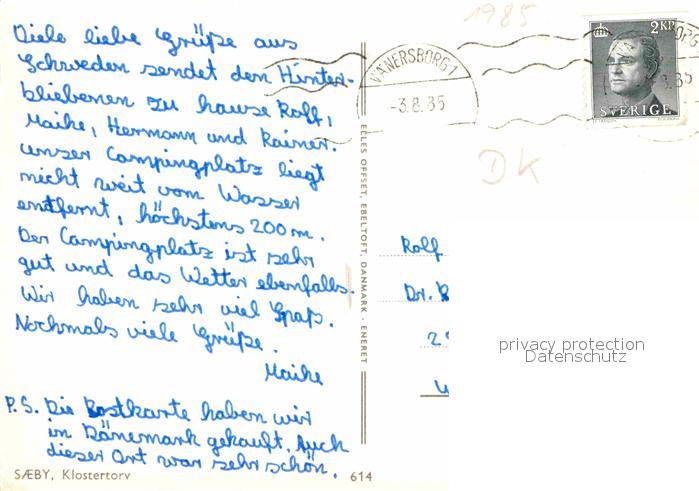 1985
2 KR
SVERIGE
VÄNERSBORG 1
-3.8.85
DK
Viele liebe Grüße aus
Schweden sendet den Hinter-
bliebenen zu hause Rolf,
Maike, Hermann und Rainer.
unser Campingplatz liegt
nicht weit vom Wasser
entfernt, höchstens 200 m.
Der Campingplatz ist sehr
gut und das Wetter ebenfalls.
Wir haben sehr viel Spaß.
Nochmals viele Grüße.
Maike
P.S. Die Postkarte haben wir
in Dänemark gekauft. Auch
dieser Ort war sehr schön.
SÆBY, Klostertorv
614
ELLES OFFSET, EBELTOFT, DANMARK - ENERET
Rolf
Dr.
2
privacy protection
Datenschutz